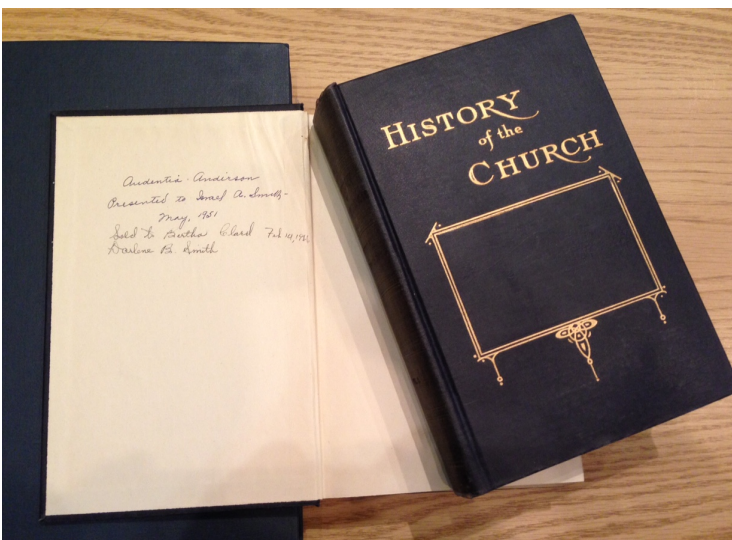 Audentia Anderson
Presented to Israel A. Smith -
May, 1951
Sold to Bertha Feb 10,
Darlene B. Smith
HISTORY
of the
CHURCH